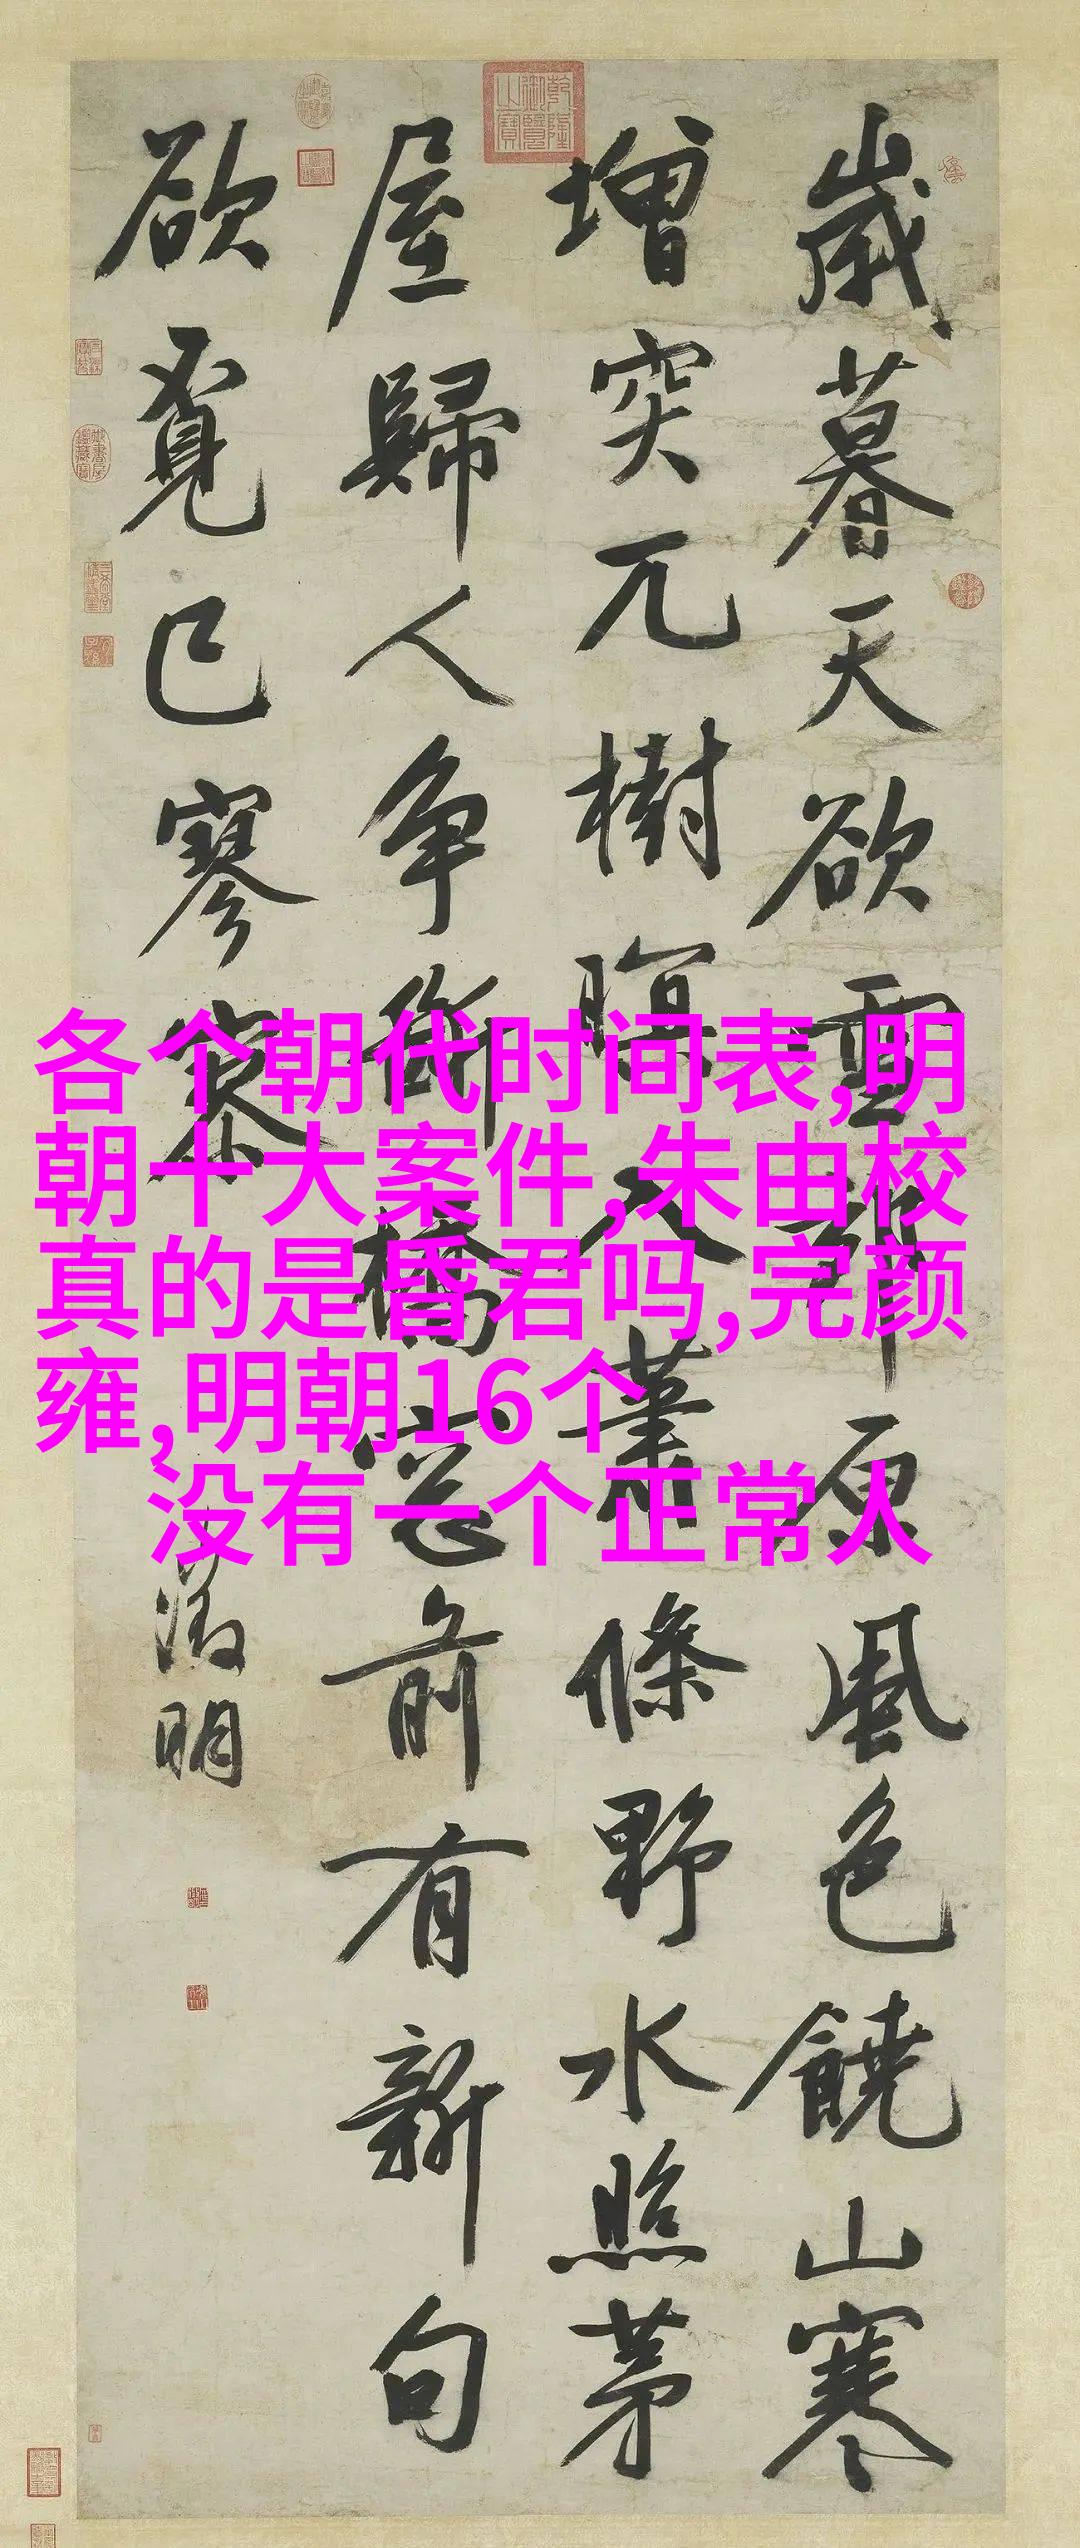 歲暮天欲雪郊原風色饒山寒
增突兀樹暝入蕭條野水照茅
屋歸人爭斷橋窓前有新句
欲覓已寥寥
徵明
乾隆御覽之寶
各个朝代时间表,明
朝十大案件,朱由校
真的是昏君吗,完颜
雍,明朝16个
没有一个正常人